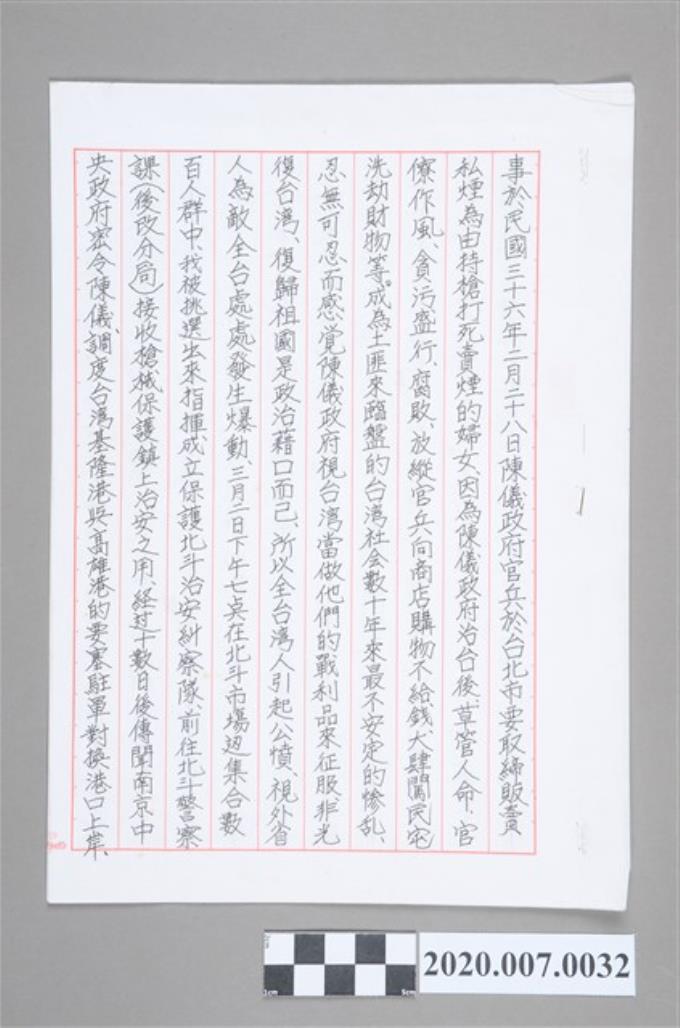 事於民國三十六年二月二十八日陳儀政府官兵於台北市要取締販賣
私煙為由持槍打死賣煙的婦女、因為陳儀政府治台後、草管人命、官
僚作風、貪污盛行、腐敗、放縱官兵向商店購物不給錢、大肆闖民宅
洗劫財物等。成為土匪來臨盤的台湾社会數十年來最不安定的慘乱、
忍無可忍而感覚陳儀政府視台湾當做他們的戰利品來征服、非光
復台湾、復歸祖國是政治藉口而己、所以全台湾人引起公憤、視外省
人為敵全台處處發生爆動、三月二日下午七点在北斗市場边集合數
百人群中、我被挑選出來指揮、成立保護北斗治安糾察隊、前往北斗警察
課(後改分局)接收槍械保護鎮上治安之用、経过十數日後傳聞南京中
央政府密令陳儀、調度台湾基隆港与高雄港的要塞駐軍對換港口上岸、
2020.007.0032
1cm
5cm